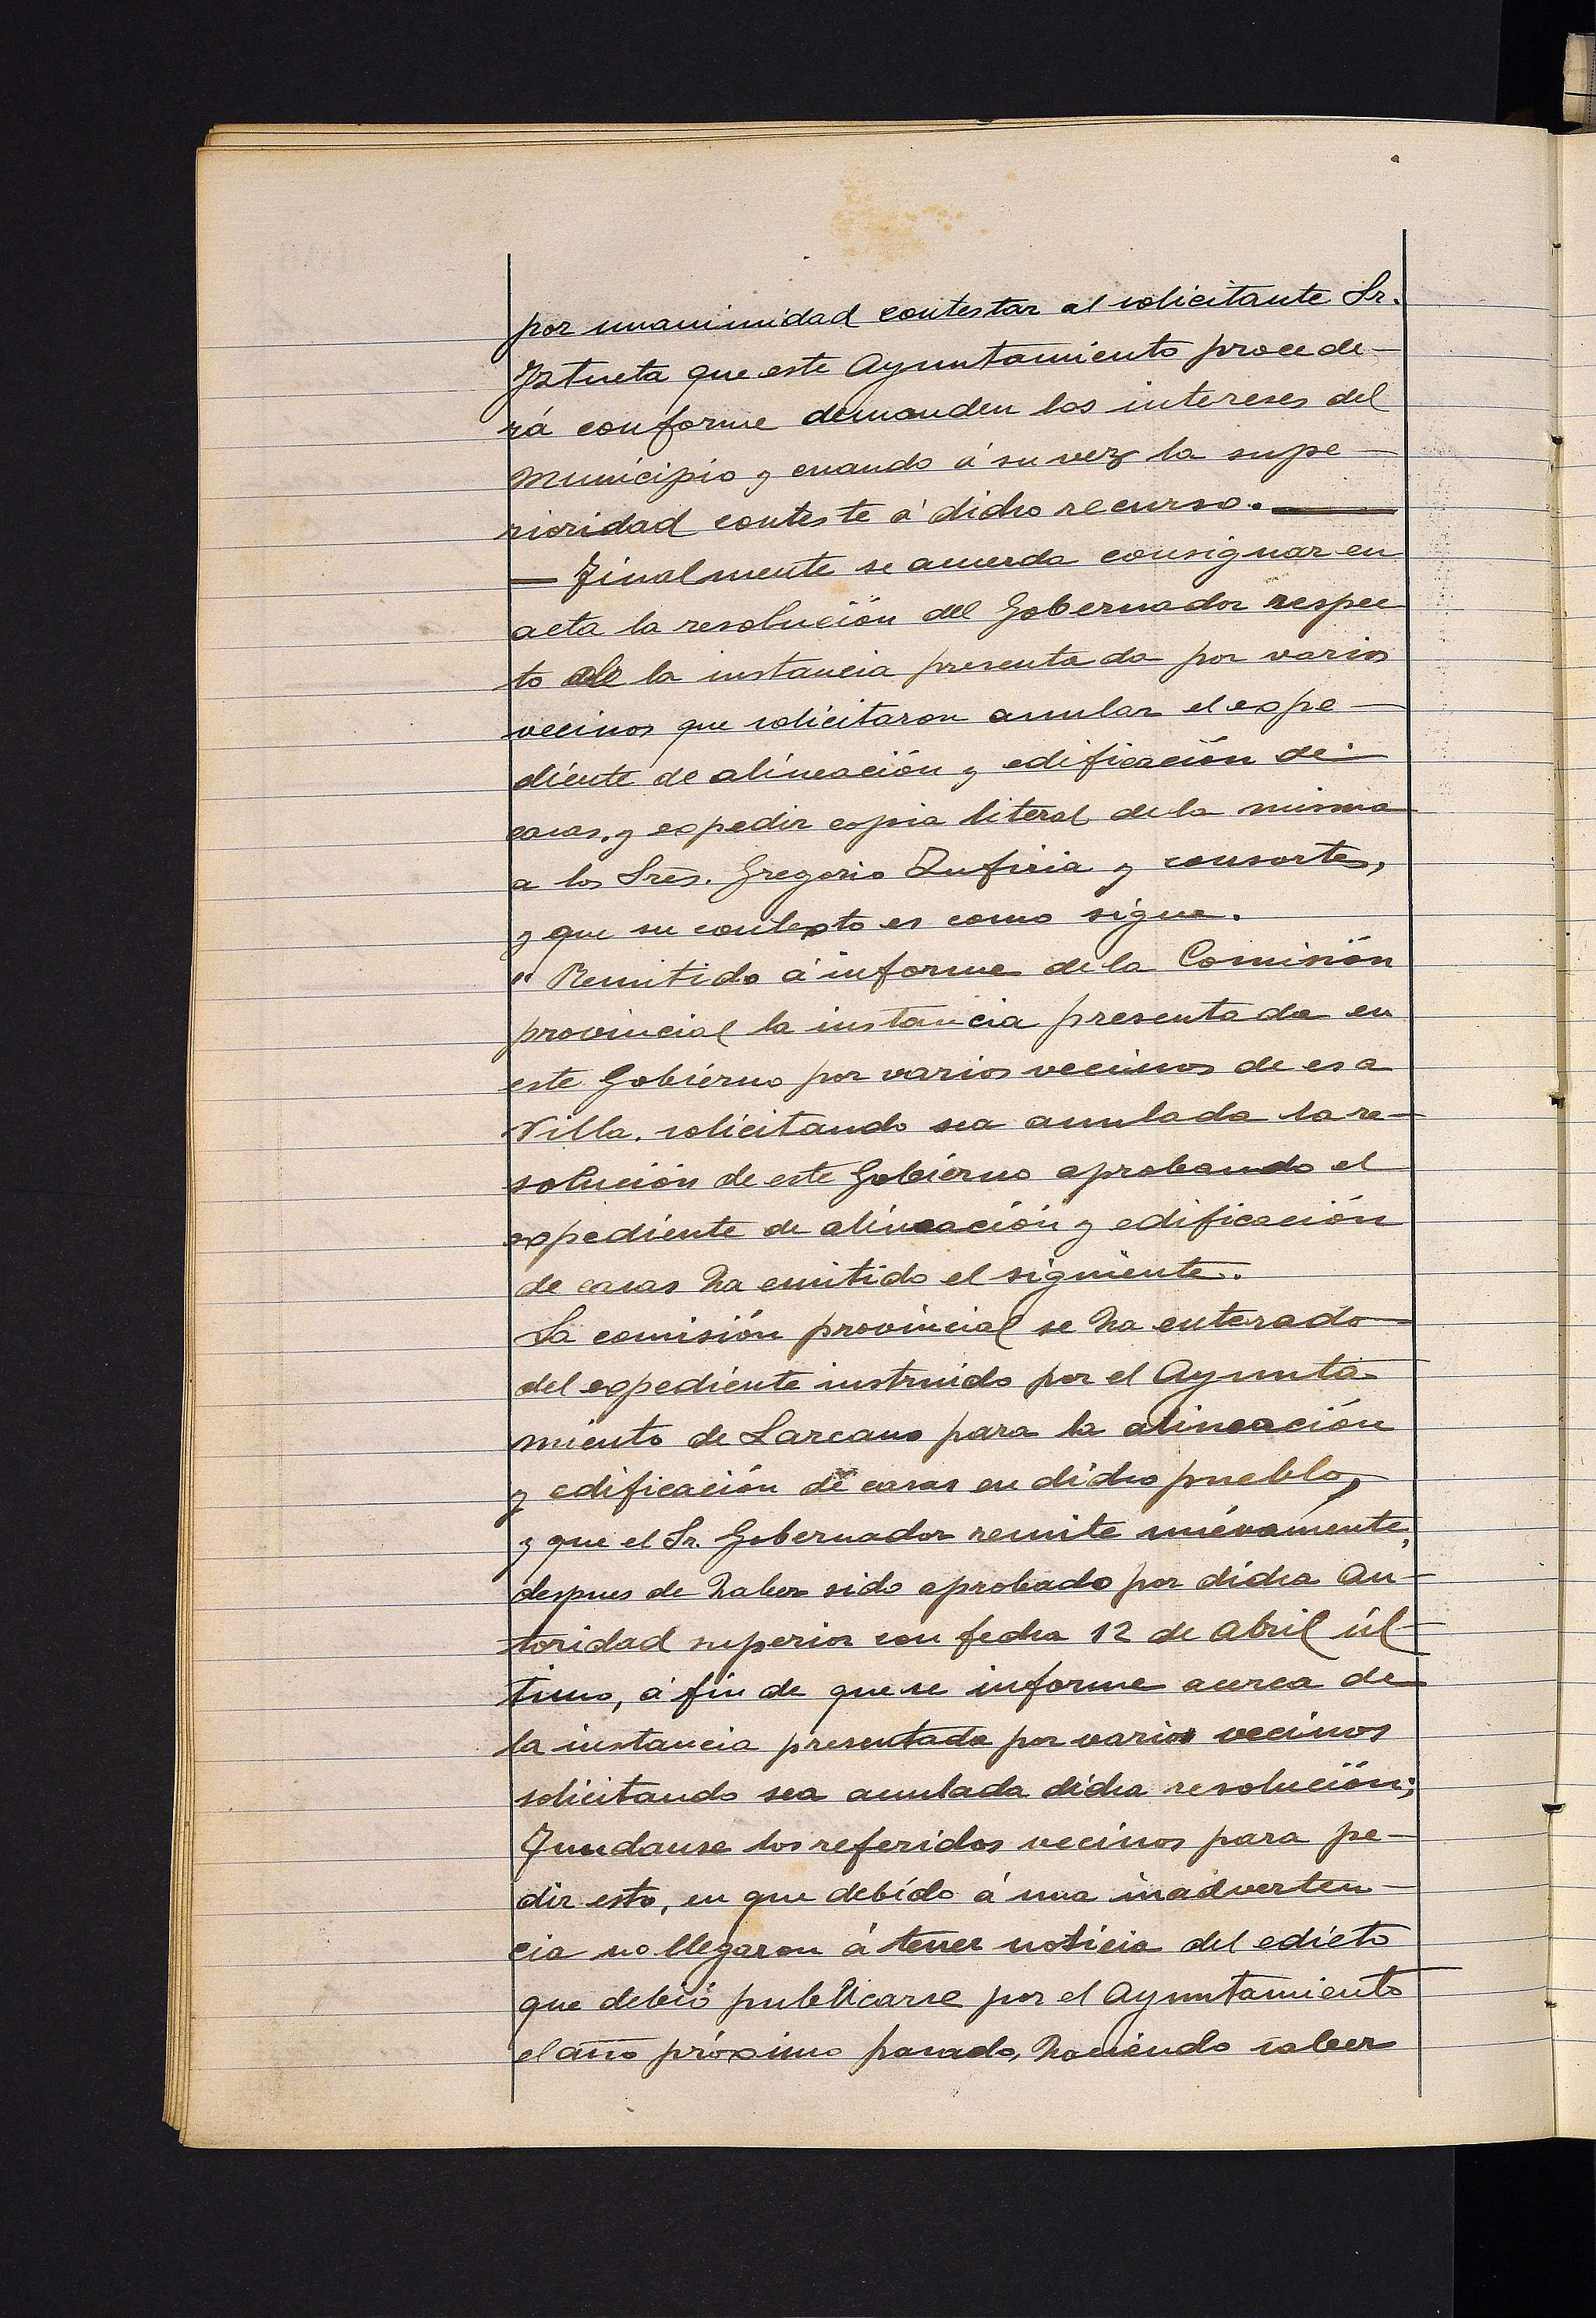 por unanimidad contestar al solicitante Sr.
Iztueta que este Ayuntamiento procede-
rá conforme demanden los intereses del
Municipio y cuando á su vez la supe-
rioridad conteste á dicho recurso.
— Finalmente se acuerda consignar en
acta la resolución del Gobernador respec
to de la instancia presentada por varios
vecinos que solicitaron anular el expe-
diente de alineación y edificación de
casas, y expedir copia literal de la misma
a los Sres. Gregorio Zufiria y consortes,
y que su contexto es como sigue.
" Remitido á informe de la Comisión
provincial la instancia presentada en
este Gobierno por varios vecinos de esa
Villa, solicitando sea anulada la re-
solución de este Gobierno aprobando el
expediente de alineación y edificación
de casas ha emitido el siguiente.
La comisión provincial se ha enterado
del expediente instruido por el Ayunta-
miento de Lazcano para la alineación
y edificación de casas en dicho pueblo,
y que el Sr. Gobernador remite nuevamente,
despues de haber sido aprobado por dicha Au-
toridad superior con fecha 12 de Abril úl-
timo, á fin de que se informe acerca de
la instancia presentada por varios vecinos
solicitando sea anulada dicha resolución;
Fundanse los referidos vecinos para pe-
dir esto, en que debido á una inadverten-
cia no llegaron á tener noticia del edicto
que debió publicarse por el Ayuntamiento
el año próximo pasado, haciendo saber